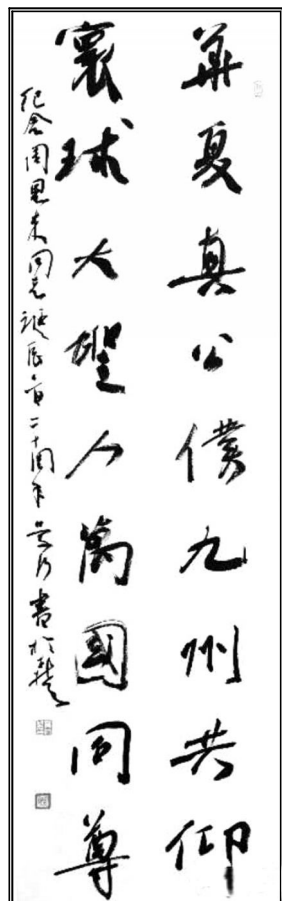 華夏真公僕九州共仰
寰球大聖人萬國同尊
纪念周恩来同志誕辰一百二十周年 书於楚